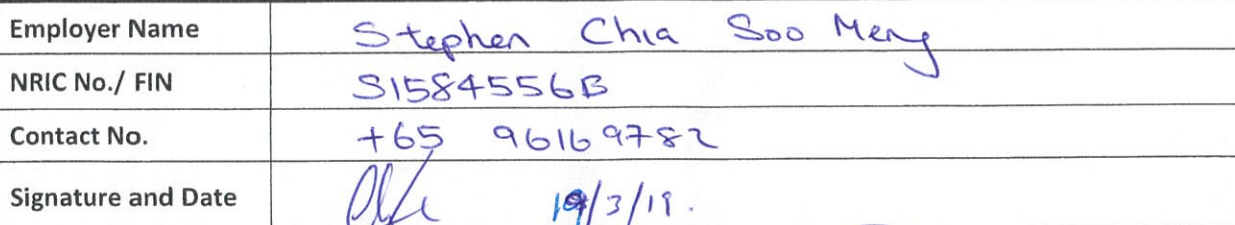 Employer Name Stephen Chia Soo Meng
NRIC No./ FIN S1584556B
Contact No. +65 96169782
Signature and Date 19/3/19.